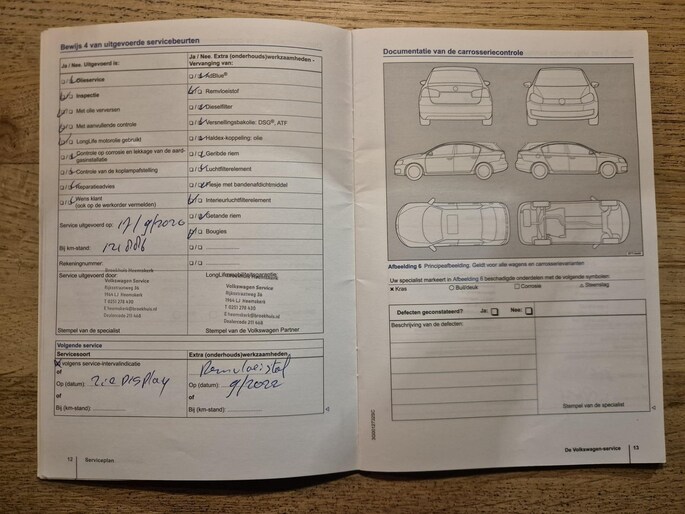 Bewijs 4 van uitgevoerde servicebeurten
Ja / Nee. Uitgevoerd is:
Ja / Nee. Extra (onderhouds)werkzaamheden -
Vervanging van:
Olieservice
AdBlue®
Inspectie
Remvloeistof
Met olie verversen
Dieselfilter
Met aanvullende controle
Versnellingsbakolie: DSG®, ATF
LongLife motorolie gebruikt
Haldex-koppeling: olie
Controle op corrosie en lekkage van de aard-
gasinstallatie
Geribde riem
Controle van de koplampafstelling
Luchtfilterelement
Reparatieadvies
Flesje met bandenafdichtmiddel
Wens klant
(ook op de werkorder vermelden)
Interieurluchtfilterelement
Service uitgevoerd op: 17/9/2020
Getande riem
Bij km-stand:
Bougies
Rekeningnummer:
Service uitgevoerd door:
Volkswagen Service
Rijksstraatweg 34
1964 LJ Heemskerk
T 0251 278 420
Dealercode 211 468
Volkswagen Service
Rijksstraatweg 34
1964 LJ Heemskerk
T 0251 278 420
E heemskerk@brookhuis.nl
Dealercode 211 468
Stempel van de specialist
Stempel van de Volkswagen Partner
Volgende service
Servicesoort
Extra (onderhouds)werkzaamheden
volgens service-intervalindicatie
Remvloeistof
of
Op (datum): zie DISPLAY
Op (datum): 9/2022
of
of
Bij (km-stand):
Bij (km-stand):
12 Serviceplan
Documentatie van de carrosseriecontrole
Afbeelding 6 Principeafbeelding. Geldt voor alle wagens en carrosserievarianten
Uw specialist markeert in Afbeelding 6 beschadigde onderdelen met de volgende symbolen:
× Kras
○ Buil/deuk
□ Corrosie
△ Steenslag
Defecten geconstateerd? Ja: Nee:
Beschrijving van de defecten:
Stempel van de specialist
De Volkswagen-service 13